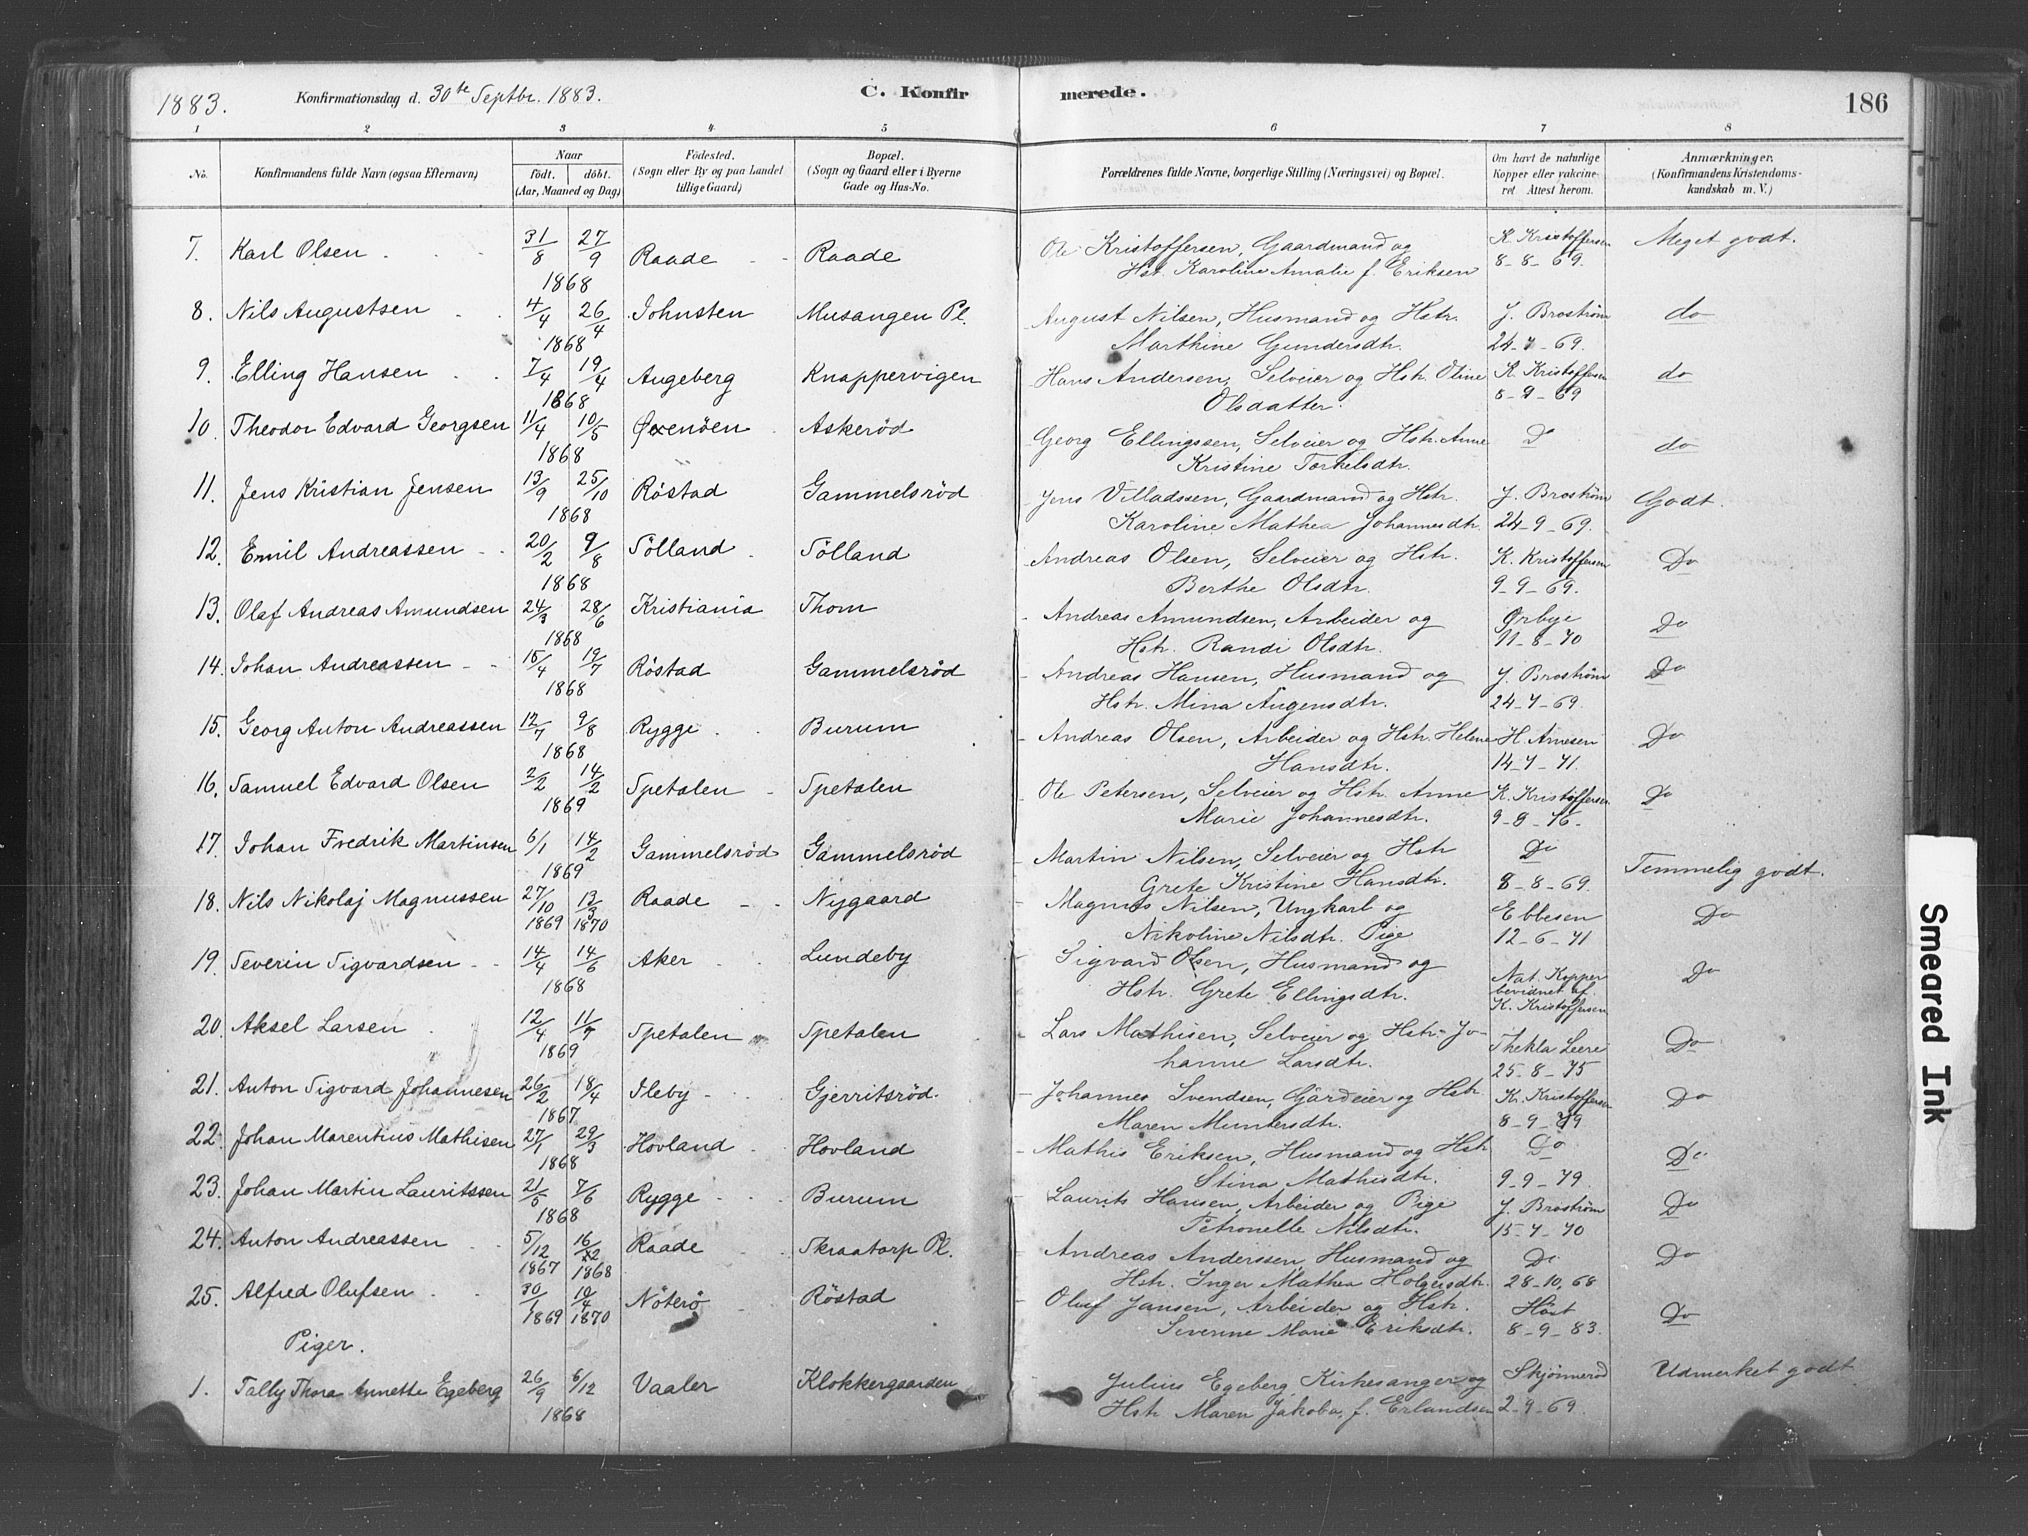 1883. Konfirmationsdag d. 30te Septbr. 1883. C. Konfirmerede. 186
1 2 3 4 5 6 7 8
No. Konfirmandens fulde Navn (ogsaa Efternavn) Naar født. døbt. (Aar, Maaned og Dag) Födested. (Sogn eller By og paa Landet tillige Gaard) Bopæl. (Sogn og Gaard eller i Byerne Gade og Hus-No. Forældrenes fulde Navne, borgerlige Stilling (Næringsvei) og Bopæl. Om havt de naturlige Kopper eller vakcineret Attest herom. Anmærkninger. (Konfirmandens Kristendomskundskab m. V.)
7. Karl Olsen 31/8 27/9 1868 Raade Raade Ole Kristoffersen, Gaardmand og Hst. Karoline Amalie f. Eriksen K. Kristoffersen 8-8-69. Meget godt.
8. Nils Augustsen 4/4 26/4 1868 Johnsten Musangen Pl. August Nilsen, Husmand og Hstr. Marthine Gundersdtr. J. Broström 24-7-69. do
9. Elling Hansen 7/4 19/4 1868 Augeberg Knappervigen Hans Andersen, Selveier og Hstr. Oline Olsdatter. K. Kristoffersen 8-9-69 do
10. Theodor Edvard Georgsen 11/4 10/5 1868 Øxenöen Askeröd Georg Ellingssen, Selveier og Hstr. Anne Kristine Torkelsdtr. Do do
11. Jens Kristian Jensen 13/9 25/10 1868 Röstad Gammelsröd Jens Villadssen, Gaardmand og Hstr. Karoline Mathea Johannesdtr. J. Broström 24-9-69. Godt.
12. Emil Andreassen 20/2 9/8 1868 Sölland Sölland Andreas Olsen, Selveier og Hstr. Berthe Olsdtr. K. Kristoffersen 9-9-69. Do
13. Olaf Andreas Amundsen 24/3 28/6 1868 Kristiania Thom Andreas Amundsen, Arbeider og Hstr. Randi Olsdtr. Ørbye 11-8-70 Do
14. Johan Andreassen 15/4 19/7 1868 Röstad Gammelsröd Andreas Hansen, Husmand og Hstr. Mina Augensdtr. J. Broström 24-7-69. Do
15. Georg Anton Andreassen 12/7 9/8 1868 Rygge Burum Andreas Olsen, Arbeider og Hstr. Helene Hansdtr. H. Arnesen 14-7-71. Do
16. Samuel Edvard Olsen 2/2 14/2 1869 Spetalen Spetalen Ole Petersen, Selveier og Hstr. Anne Marie Johannesdtr. K. Kristoffersen 9-8-76. Do
17. Johan Fredrik Martinsen 6/1 14/2 1869 Gammelsröd Gammelsröd Martin Nilsen, Selveier og Hstr Grete Kristine Hansdtr. Do 8-8-69. Temmelig godt.
18. Nils Nikolaj Magnussen 27/10 13/3 1869 1870 Raade Nygaard Magnus Nilsen, Ungkarl og Nikoline Nilsdtr. Pige Ebbesen 12-6-71 Do
19. Severin Sigvardsen 14/4 14/6 1868 Aker Lundeby Sigvard Olsen, Husmand og Hstr. Grete Ellingsdtr. Nat. Kopper bevidnet af K. Kristoffersen Do
20. Aksel Larsen 12/4 11/7 1869 Spetalen Spetalen Lars Mathisen, Selveier og Hstr. Johanne Larsdtr. Thekla Leere 25-8-75 Do
21. Anton Sigvard Johannesen 26/2 18/4 1867 Ileby Gjerritsröd. Johannes Svendsen, Gårdeier og Hstr Maren Muntersdtr. K. Kristoffersen 8-9-79 Do
22. Johan Marentius Mathisen 27/1 29/3 1868 Hovland Hovland Mathis Eriksen, Husmand og Hstr Stina Mathisdtr. Do 9-9-79. Do
23. Johan Martin Lauritssen 21/5 7/6 1868 Rygge Burum Laurits Hansen, Arbeider og Pige Petronelle Nilsdtr. J. Broström 15-7-70 Do
24. Anton Andreassen 5/12 16/12 1867 1868 Raade Skraatorp Pl. Andreas Anderssen, Husmand og Hstr. Inger Mathea Holgersdtr. Do 28-10,68 Do
25. Alfred Olufsen 30/1 10/4 1869 1870 Nöterö Röstad Oluf Jansen, Arbeider og Hstr. Severine Marie Eriksdtr. Höst 8-9-83. Do
Piger.
1. Tally Thora Annette Egeberg 26/9 6/12 1868 Vaaler Klokkergaarden Julius Egeberg, Kirkesanger og Hstr Maren Jakoba, f. Erlandsen Skjönneröd 2-9-69. Udmerket godt
Smeared Ink